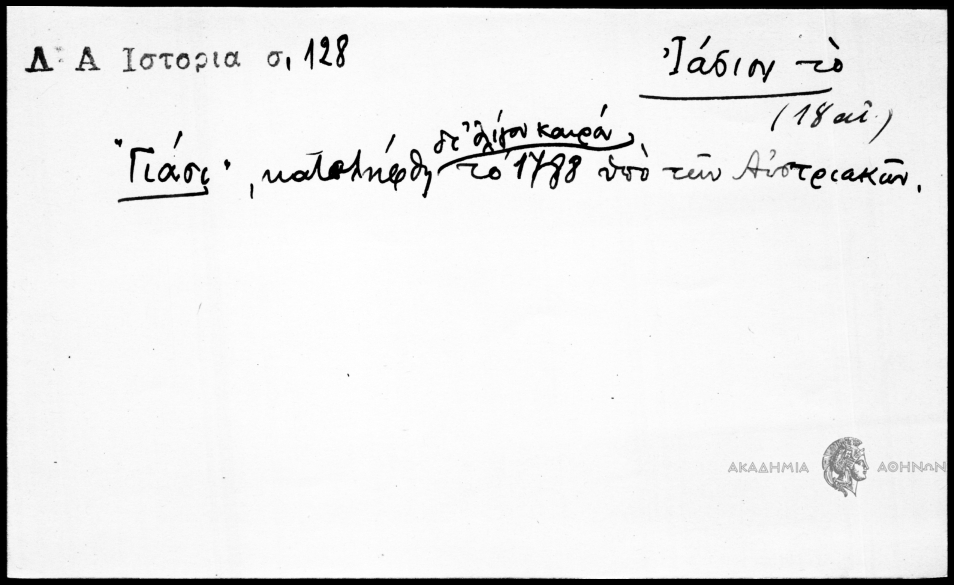 Δ Α Ιστορια σ. 128
Ἰάσιον τὸ
(18 αἰ.)
δι' ὀλίγον καιρόν
"Γιάσι", κατελήφθη τὸ 1788 ὑπὸ τῶν Αὐστριακῶν.
ΑΚΑΔΗΜΙΑ ΑΘΗΝΩΝ